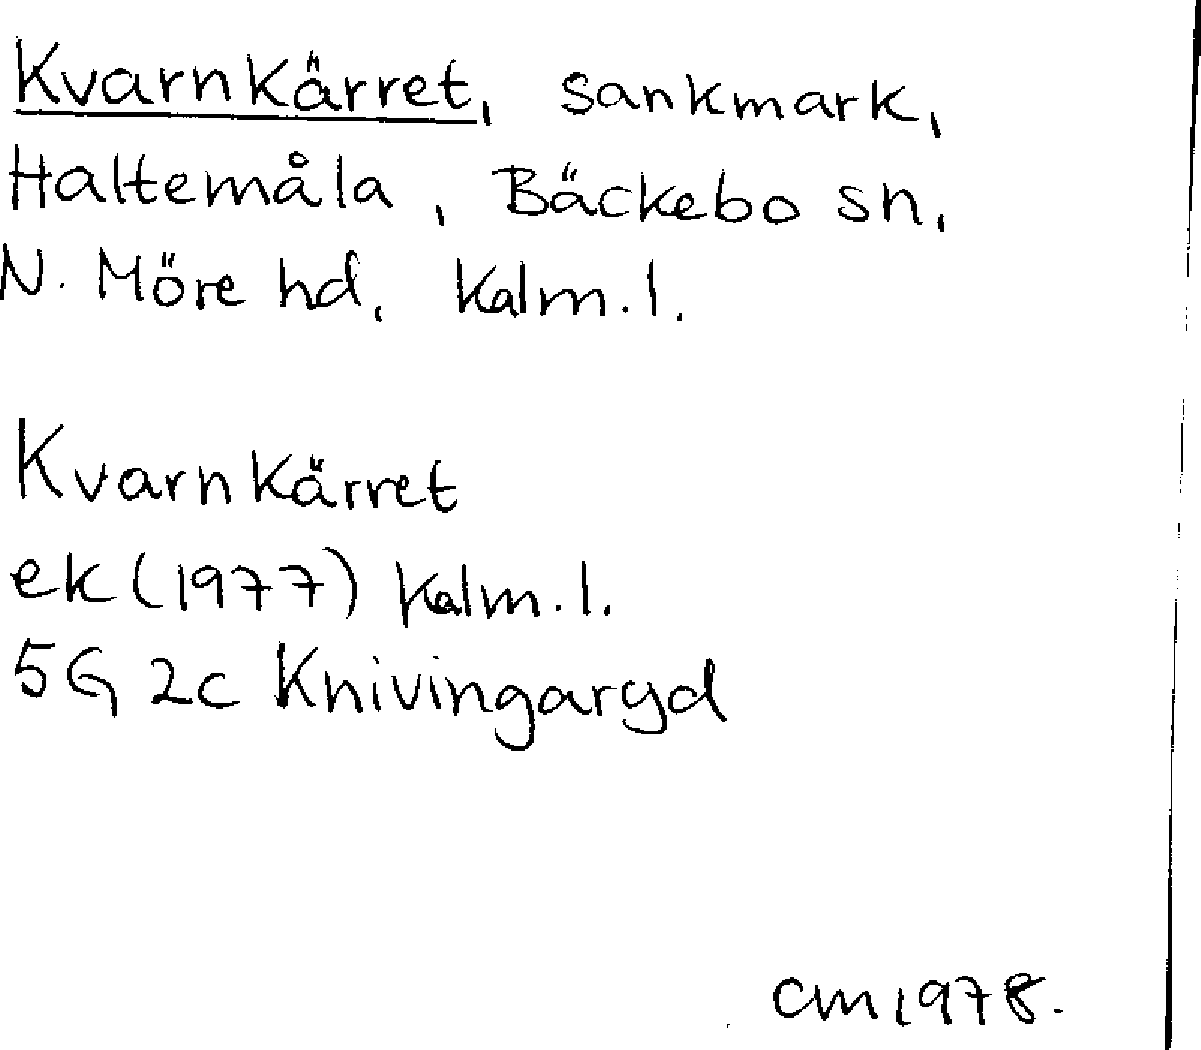 Kvarnkärret, sankmark,
Haltemåla, Bäckebo sn,
N. Möre hd, Kalm.l.
Kvarnkärret
ek (1977) Kalm.l.
5G 2c Knivingaryd
CM 1978.